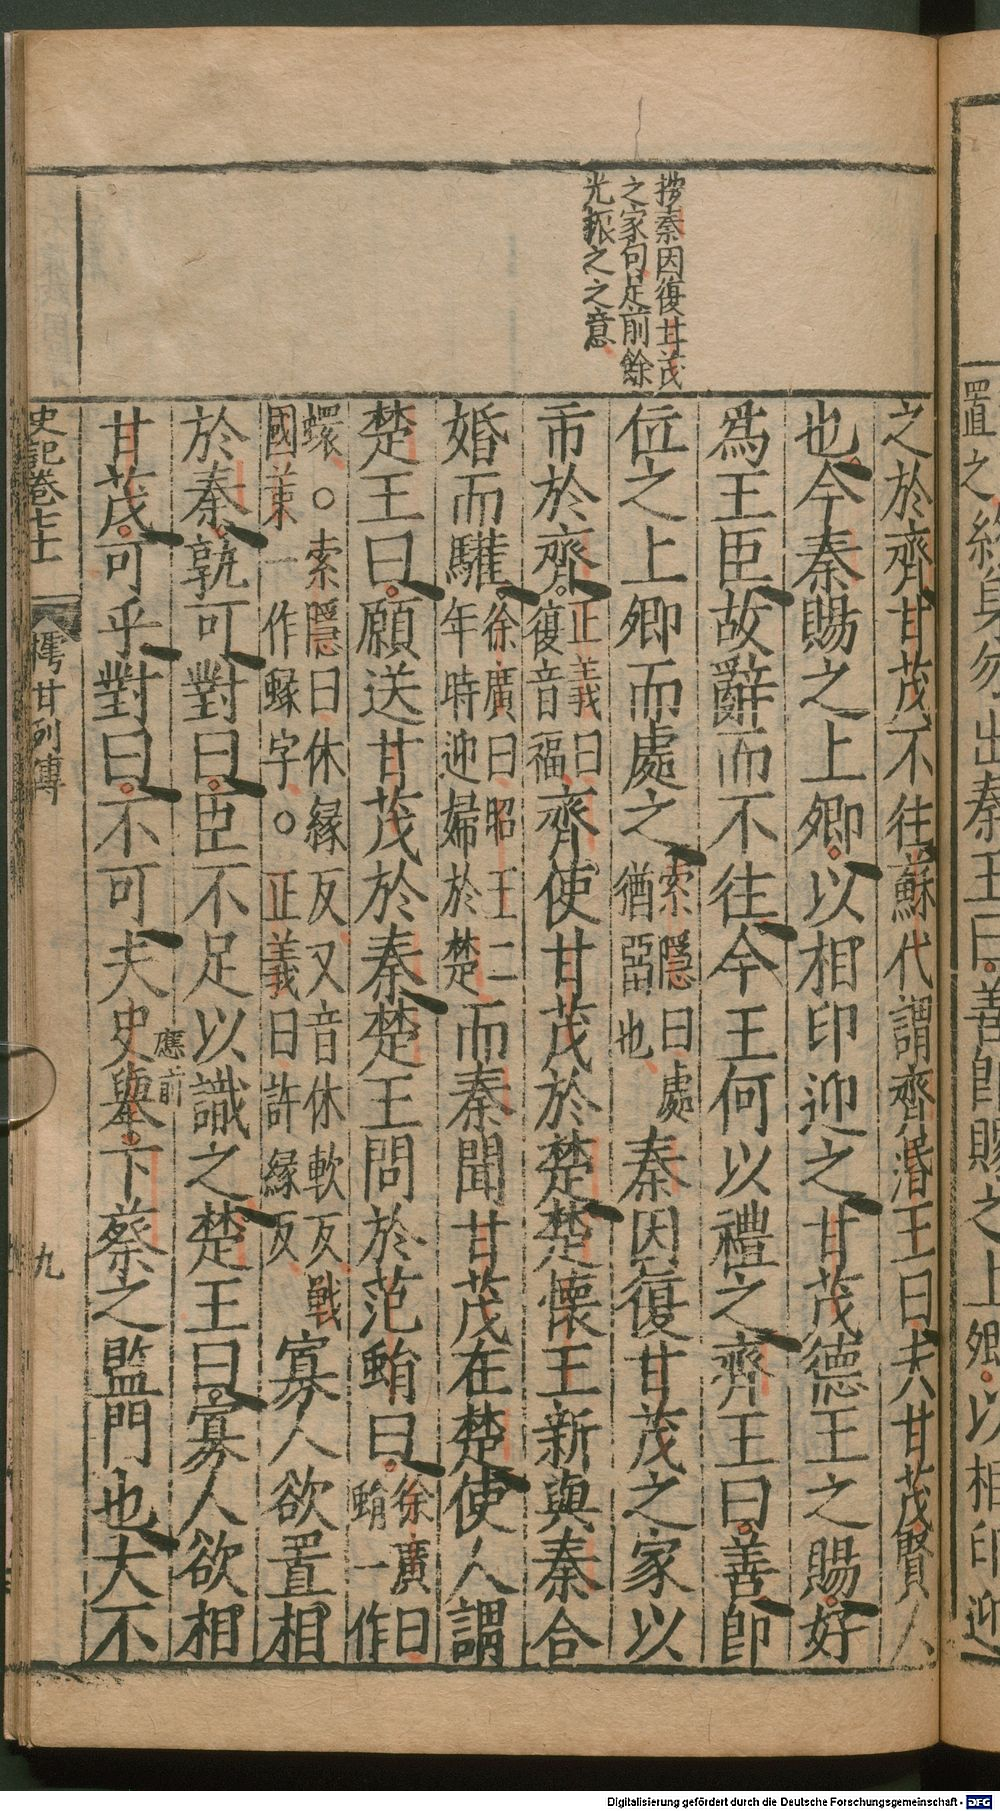 按秦因復甘茂
之家句足前餘
光振之之意
之於齊甘茂不往蘇代謂齊湣王曰夫甘茂賢人
也今秦賜之上卿以相印迎之甘茂德王之賜好
爲王臣故辭而不往今王何以禮之齊王曰善卽
位之上卿而處之索隱曰處猶畱也秦因復甘茂之家以
市於齊正義曰復音福齊使甘茂於楚楚懷王新與秦合
婚而驩徐廣曰昭王二年時迎婦於楚而秦聞甘茂在楚使人謂
楚王曰願送甘茂於秦楚王問於范蜎曰徐廣曰一作
蠉○索隱曰休緣反又音休軟反戰國策一作蝝字○正義曰許緣反寡人欲置相
於秦孰可對曰臣不足以識之楚王曰寡人欲相
甘茂可乎對曰不可夫史舉下蔡之監門也大不
應前
史記卷七十一
樗甘列傳
九
置之終身勿出秦王曰善卽賜之上卿以相印迎
Digitalisierung gefördert durch die Deutsche Forschungsgemeinschaft - DFG